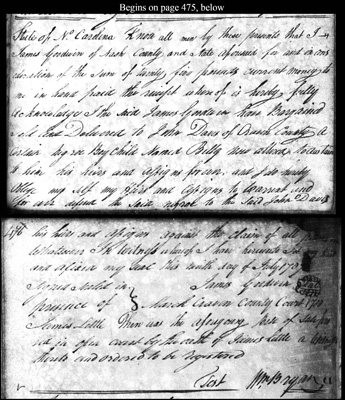 Begins on page 475, below
State of No. Carolina Know all men by these presents that I
James Goodwin of County and State aforesaid for and in con
sideration of the Sum of twenty five pounds current money to
me in hand paid the receipt whereof is hereby fully
acknowledge I the said James Goodwin have Bargained
Sold and Delivered to John Davis of County a
Certain negroe Boy Child Named Billy
him his heirs and assigns forever and I do hereby
oblige my self my heirs and assigns to warrant and
for ever defend the said negroe to the said John Davis
476
his heirs and assigns against the claim of all
whatsoever In Witness whereof I have hereunto set my hand
and affixed my Seal this day of July
Signed Sealed in James Goodwin
presence of March Craven County Court
James Little Then was the aforegoing of
in open court by the oath of James Little a
thereto and ordered to be registered
Test Wm Bryan